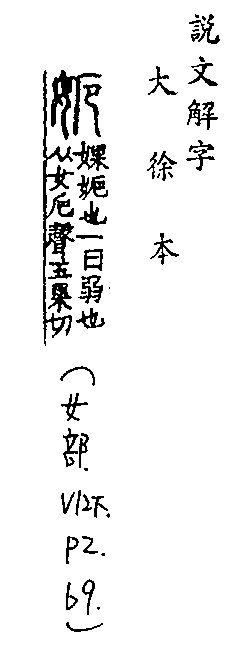 說文解字
大徐本
婐婐也一曰弱也
从女厄聲五果切
(女部.
V12下.
P2.
69.)